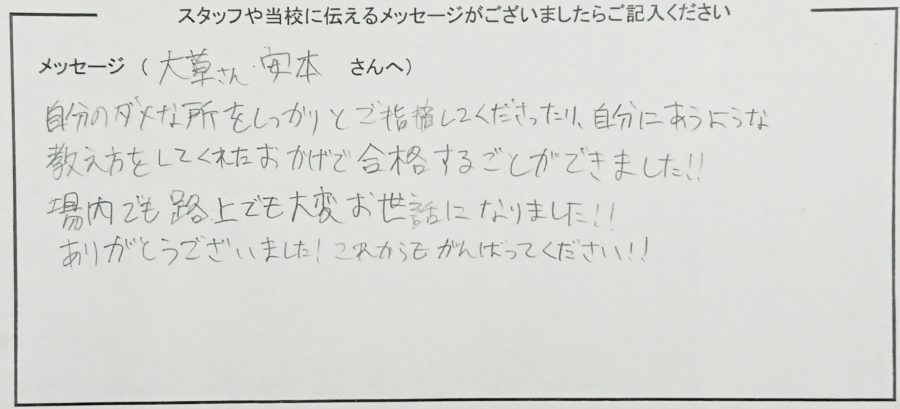 スタッフや当校に伝えるメッセージがございましたらご記入ください
メッセージ（大草さん・安本 さんへ）
自分のダメな所をしっかりとご指摘してくださったり、自分にあうような
教え方をしてくれたおかげで合格することができました!!
場内でも路上でも大変お世話になりました!!
ありがとうございました!これからもがんばってください!!